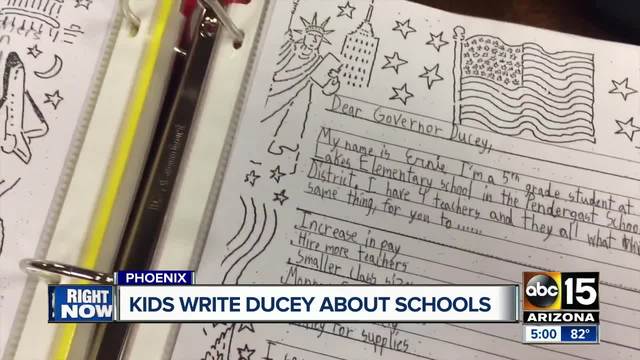 Dear Governor Ducey,
My name is Ernie I'm a 5th grade student at
Lakes Elementary school in the Pendergast School
District. I have 4 teachers and they all what the
same thing, for you to......
Increase in pay
Hire more teachers
Smaller class
for supplies
PHOENIX
RIGHT NOW
KIDS WRITE DUCEY ABOUT SCHOOLS
abc 15
ARIZONA
5:00 82°